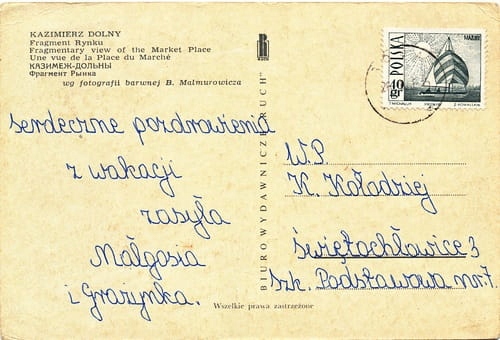 KAZIMIERZ DOLNY
Fragment Rynku
Fragmentary view of the Market Place
Une vue de la Place du Marché
КАЗИМЕЖ-ДОЛЬНЫ
Фрагмент Рынка
wg fotografii barwnej B. Malmurowicza
serdeczne pozdrowienia
z wakacji
zasyła
Małgosia
i Grażynka.
Wszelkie prawa zastrzeżone
BIURO WYDAWNICZE „RUCH”
POLSKA
40 gr
MAZURY
W.P.
K. Kołodziej
Świętochłowice 3
Szk. Podstawowa nr. 7.